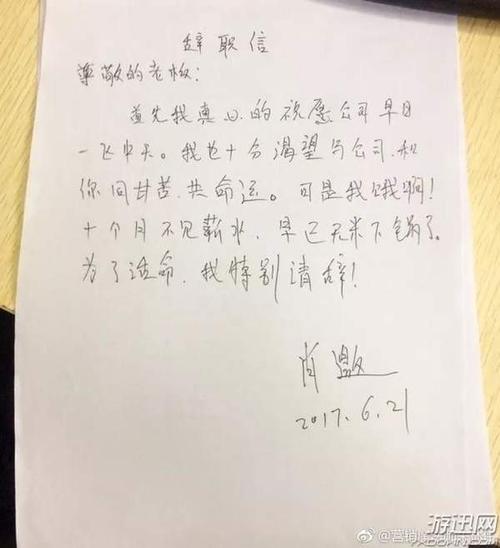 辞职信
尊敬的老板：
首先我真心的祝愿公司早日
一飞冲天。我也十分渴望与公司和
你同甘苦、共命运。可是我饿啊！
十个月不见薪水，早已无米下锅了。
为了活命，我特别请辞！
肖
2017.6.21
游迅网
@营销